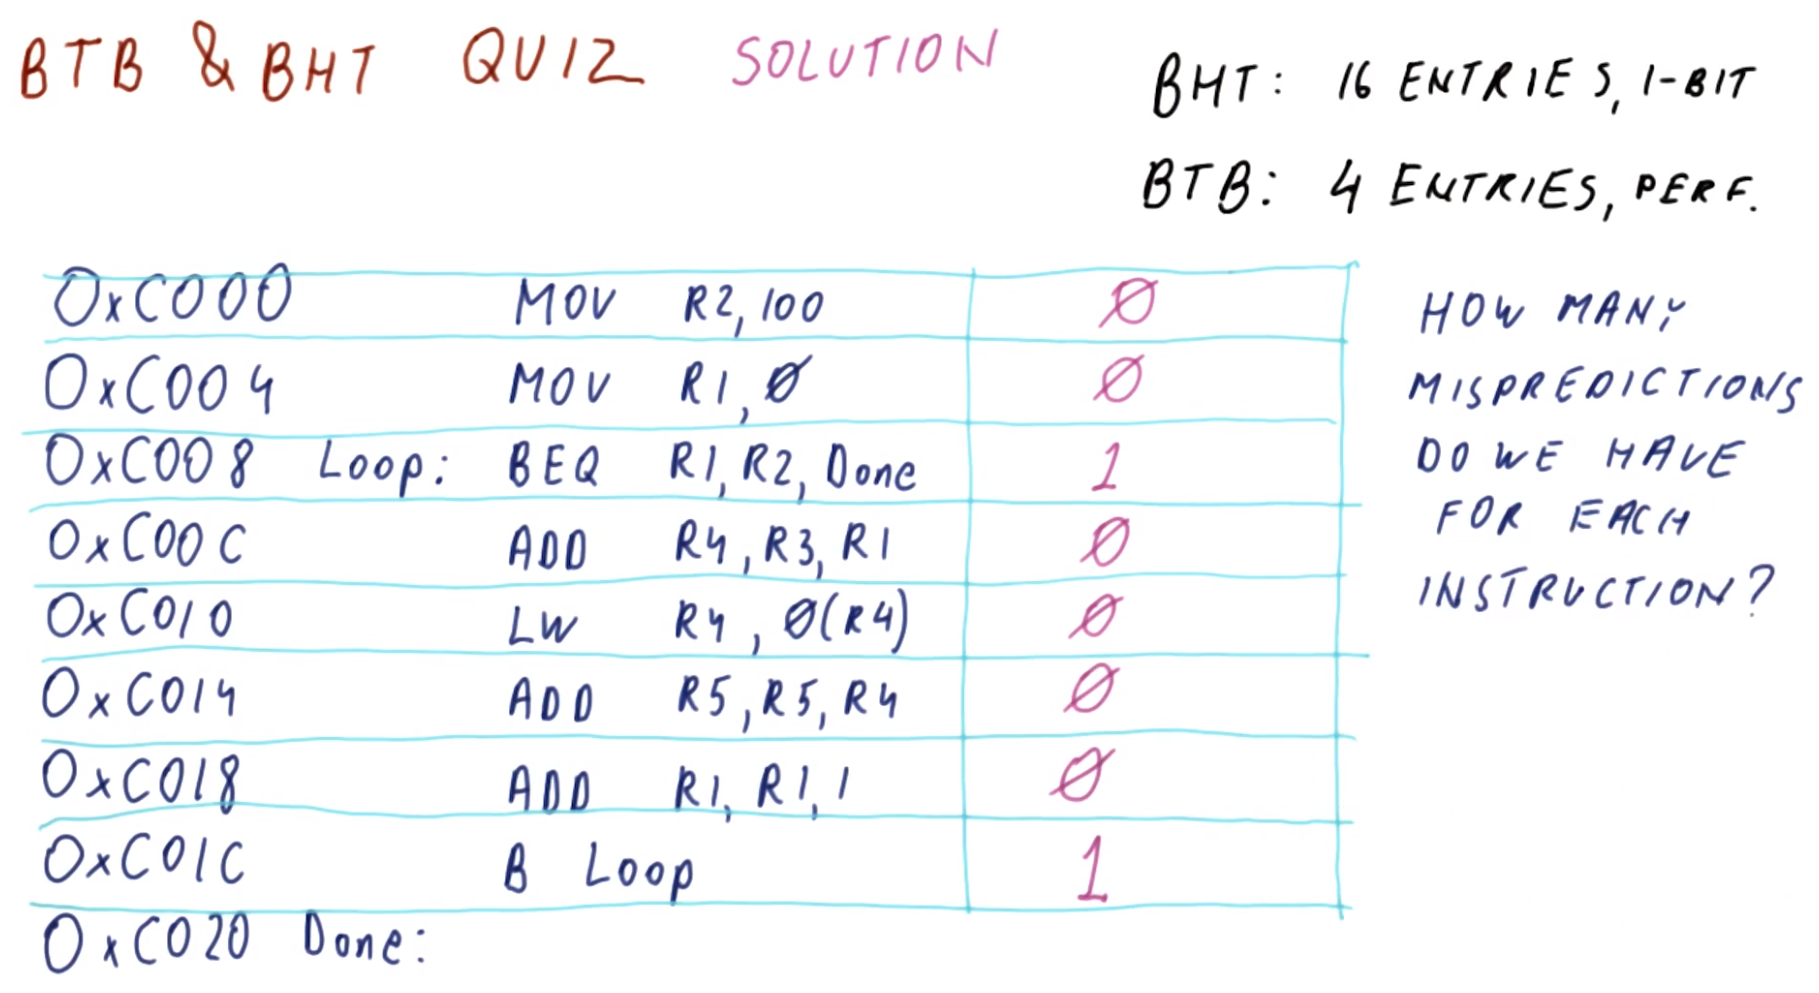 BTB & BHT QUIZ SOLUTION
BHT: 16 ENTRIES, 1-BIT
BTB: 4 ENTRIES, PERF.
0xC000 MOV R2, 100 Ø
0xC004 MOV R1, Ø Ø
0xC008 Loop: BEQ R1, R2, Done 1
0xC00C ADD R4, R3, R1 Ø
0xC010 LW R4, Ø(R4) Ø
0xC014 ADD R5, R5, R4 Ø
0xC018 ADD R1, R1, 1 Ø
0xC01C B Loop 1
0xC020 Done:
HOW MANY
MISPREDICTIONS
DO WE HAVE
FOR EACH
INSTRUCTION?